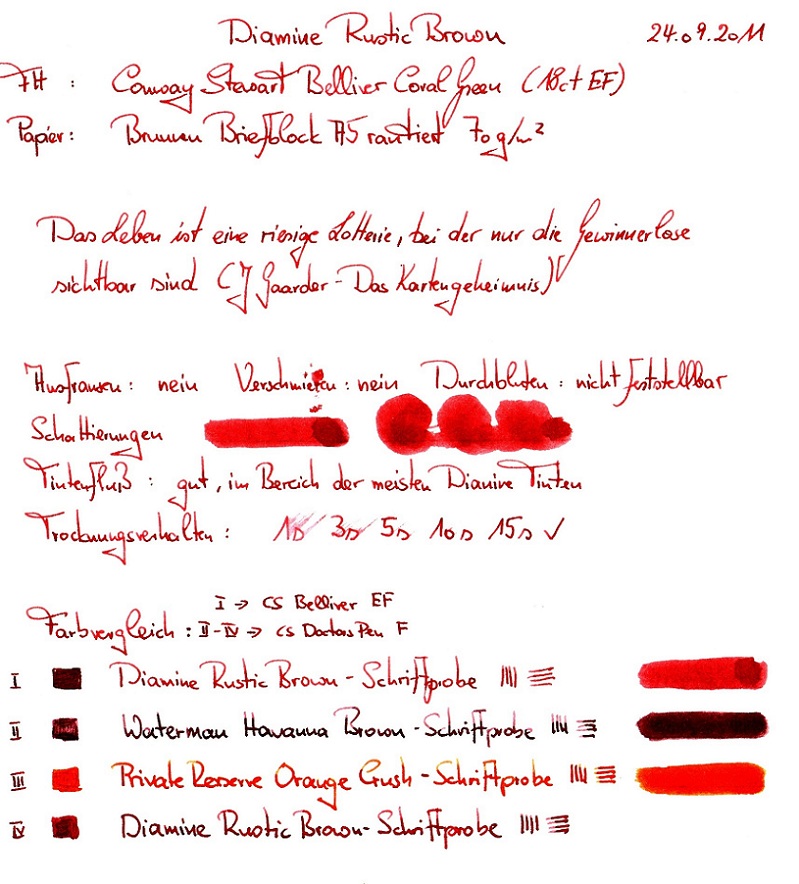 Diamine Rustic Brown 24.09.2011
FH : Conway Stewart Belliver Coral Green (18ct EF)
Papier: Brunnen Briefblock A5 rautiert 70 g/m²
Das Leben ist eine riesige Lotterie, bei der nur die Gewinnerlose
sichtbar sind (J Gaarder - Das Kartengeheimnis)
Ausfransen : nein Verschmieren : nein Durchbluten : nicht feststellbar
Schattierungen
Tintenfluß : gut, im Bereich der meisten Diamine Tinten
Trocknungsverhalten : 1s 3s 5s 10s 15s ✓
I → CS Belliver EF
Farbvergleich : II-IV → CS Doctors Pen F
I Diamine Rustic Brown - Schriftprobe
II Waterman Havanna Brown - Schriftprobe
III Private Reserve Orange Crush - Schriftprobe
IV Diamine Rustic Brown - Schriftprobe